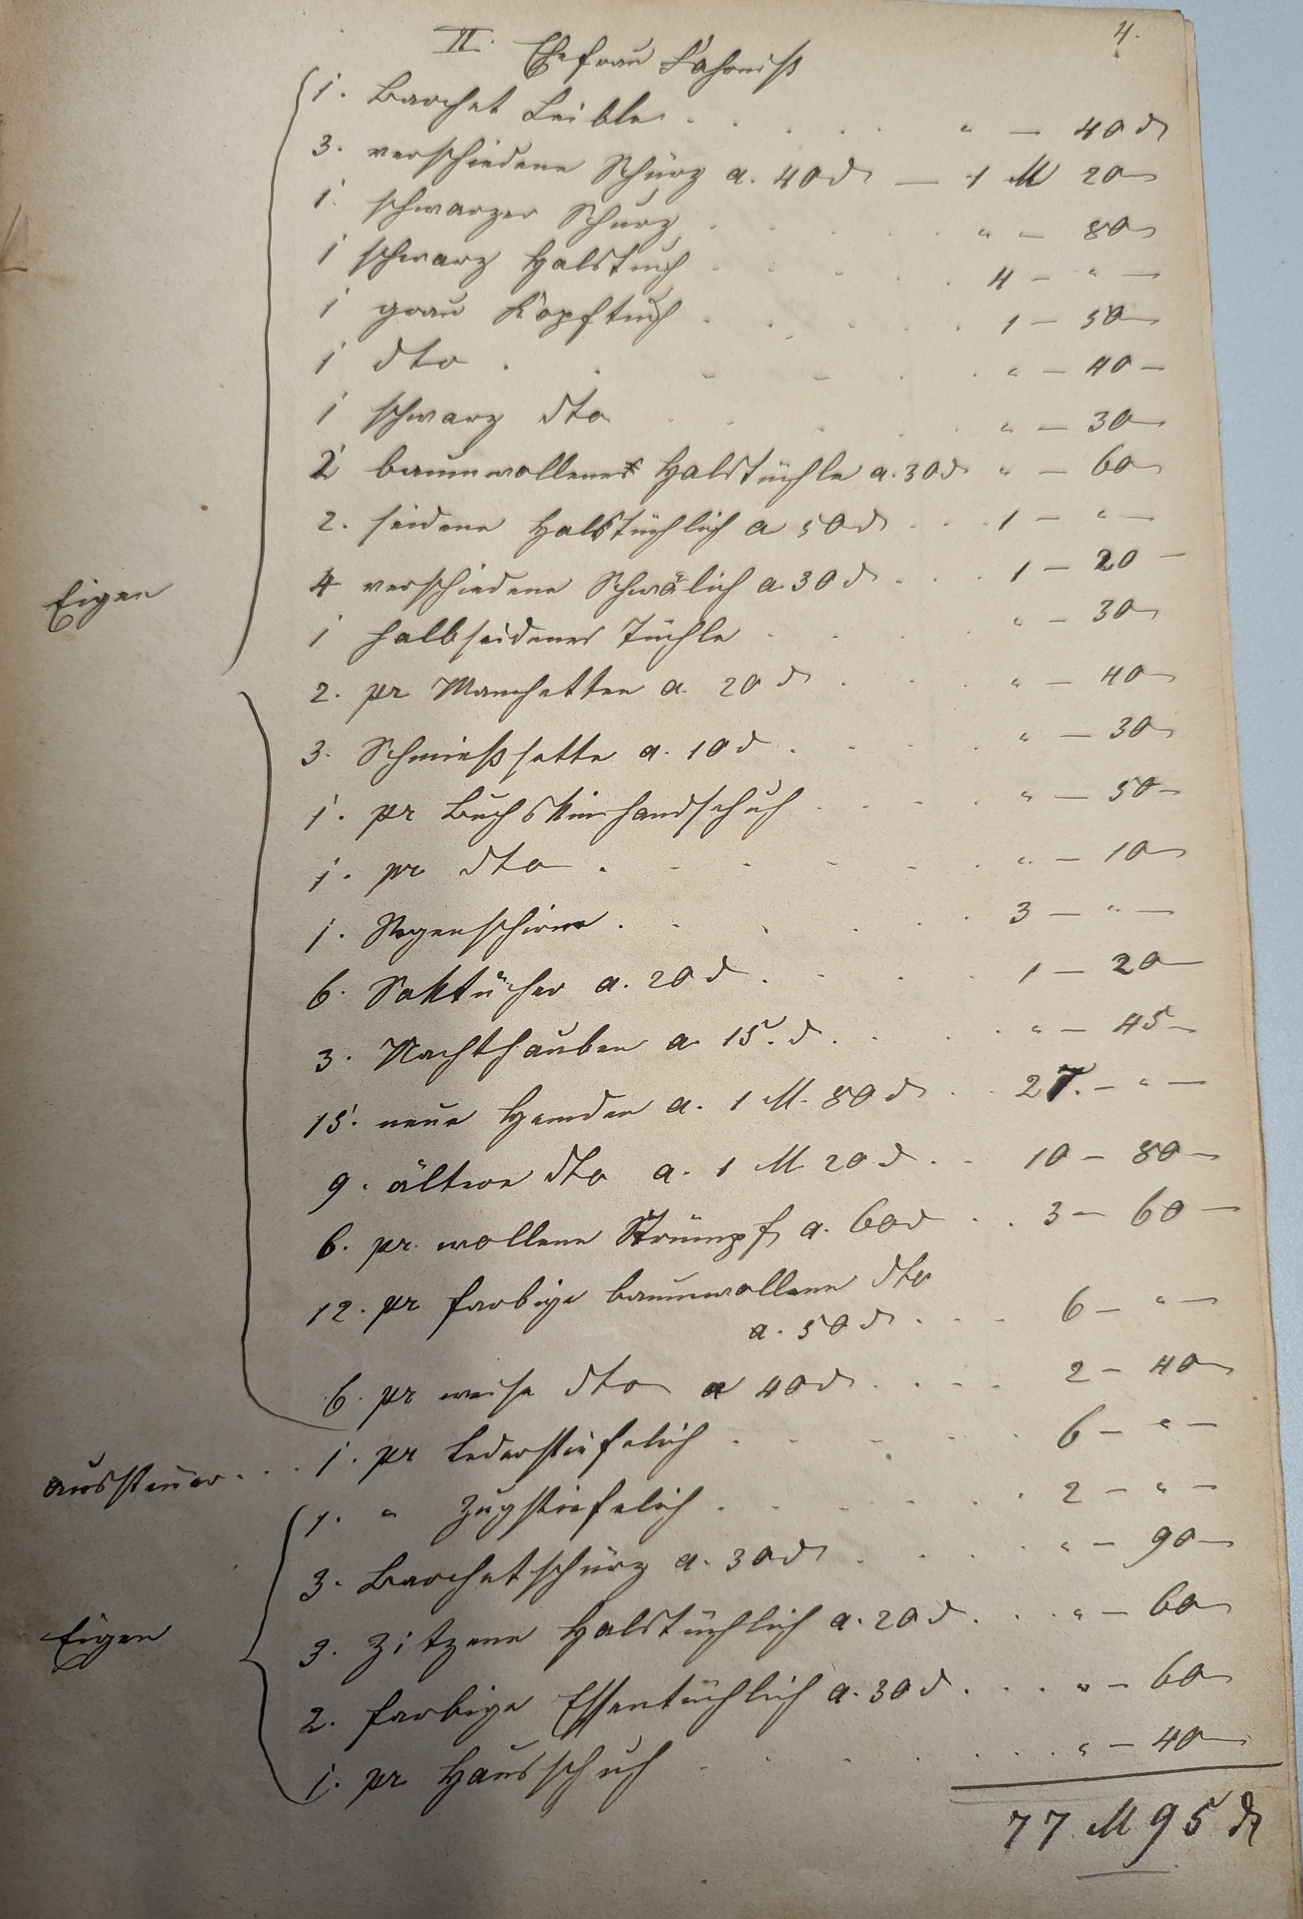 4.
II. Ehefrau Fahrniß
1. Barchet Leible . . . . " — 40 ₰
3. verschiedene Schürz a. 40 ₰ — 1 M 20 —
1. schwarzer Schurz . . . . " — 80 —
1 schwarz Halstuch . . . . 4 — " —
1 grau Kopftuch . . . . 1 — 50 —
1 dto . . . . " — 40 —
1 schwarz dto . . . . " — 30 —
2 baumwollene Halstüchle a. 30 ₰ " — 60 —
2. seidene Halstüchlich a 50 ₰ . . . 1 — " —
4 verschiedene a. 30 ₰ . . . 1 — 20 —
Eigen
1 halbseidenes Tüchle . . . . " — 30 —
2. pr Manchetten a. 20 ₰ . . . " — 40 —
3. a. 10 ₰ . . . . " — 30 —
1. pr Buchskinhandschuh . . . . " — 50 —
1. pr dto . . . . " — 10 —
1. Regenschirm . . . . 3 — " —
6. Saktücher a. 20 ₰ . . . . 1 — 20 —
3. Nachthauben a. 15. ₰ . . . . " — 45 —
15. neue Hemden a. 1 M. 80 ₰ . . 27. — " —
9. ältere dto a. 1 M 20 ₰ . . 10 — 80 —
6. pr. wollene Strümpf a. 60 ₰ . . 3 — 60 —
12. pr farbige baumwollene dto
a. 50 ₰ . . . . 6 — " —
6. pr weise dto a 40 ₰ . . . . 2 — 40 —
Aussteuer . . . 1. pr Lederstiefelich . . . . 6 — " —
1. " Zugstiefelich . . . . 2 — " —
3. Barchetschürz a. 30 ₰ . . . . " — 90 —
Eigen
3. Zitzene Halstüchlich a. 20 ₰ . . . " — 60 —
2. farbige Essentüchlich a. 30 ₰ . . . " — 60 —
1. pr Hausschuh . . . . " — 40 —
77 M 95 ₰